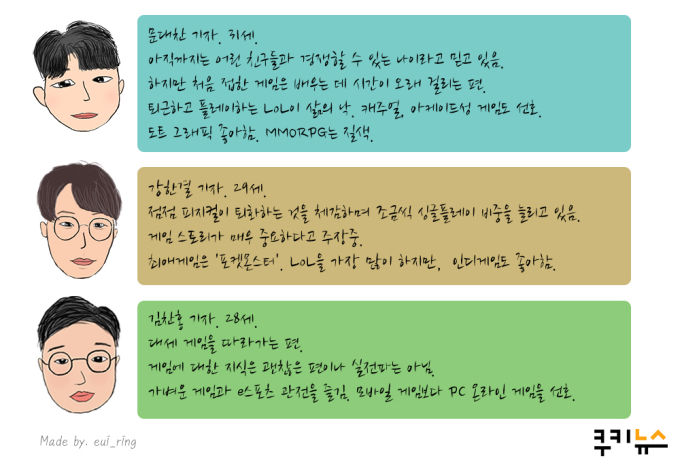 문대찬 기자. 31세.
아직까지는 어린 친구들과 경쟁할 수 있는 나이라고 믿고 있음.
하지만 처음 접한 게임은 배우는 데 시간이 오래 걸리는 편.
퇴근하고 플레이하는 LoL이 삶의 낙. 캐주얼, 아케이드성 게임도 선호.
도트 그래픽 좋아함. MMORPG는 질색.
강한결 기자. 29세.
점점 피지컬이 퇴화하는 것을 체감하며 조금씩 싱글플레이 비중을 늘리고 있음.
게임 스토리가 매우 중요하다고 주장중.
최애게임은 '포켓몬스터'. LoL을 가장 많이 하지만, 인디게임도 좋아함.
김찬홍 기자. 28세.
대세 게임을 따라가는 편.
게임에 대한 지식은 괜찮은 편이나 실전파는 아님.
가벼운 게임과 e스포츠 관전을 즐김. 모바일 게임보다 PC 온라인 게임을 선호.
Made by. eui_ring
쿠키뉴스